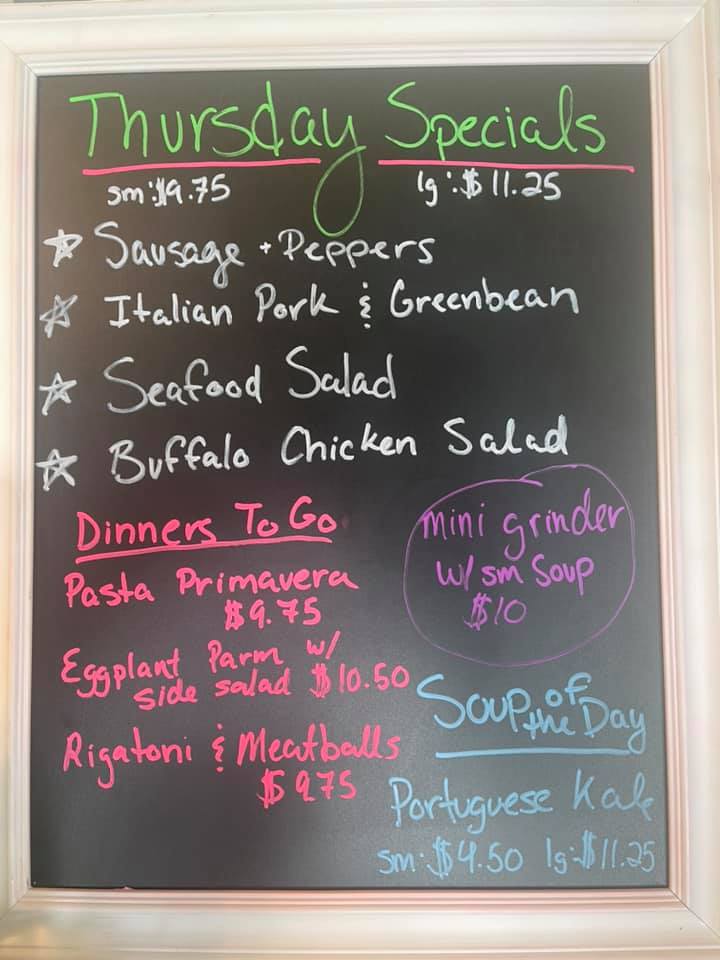 Thursday Specials
sm:$9.75 lg:$11.25
Sausage + Peppers
Italian Pork & Greenbean
Seafood Salad
Buffalo Chicken Salad
Dinners To Go
Pasta Primavera
$9.75
Eggplant Parm w/
side salad $10.50
Rigatoni & Meatballs
$9.75
mini grinder
w/ sm Soup
$10
Soup of
the Day
Portuguese Kale
sm:$4.50 lg:$11.25